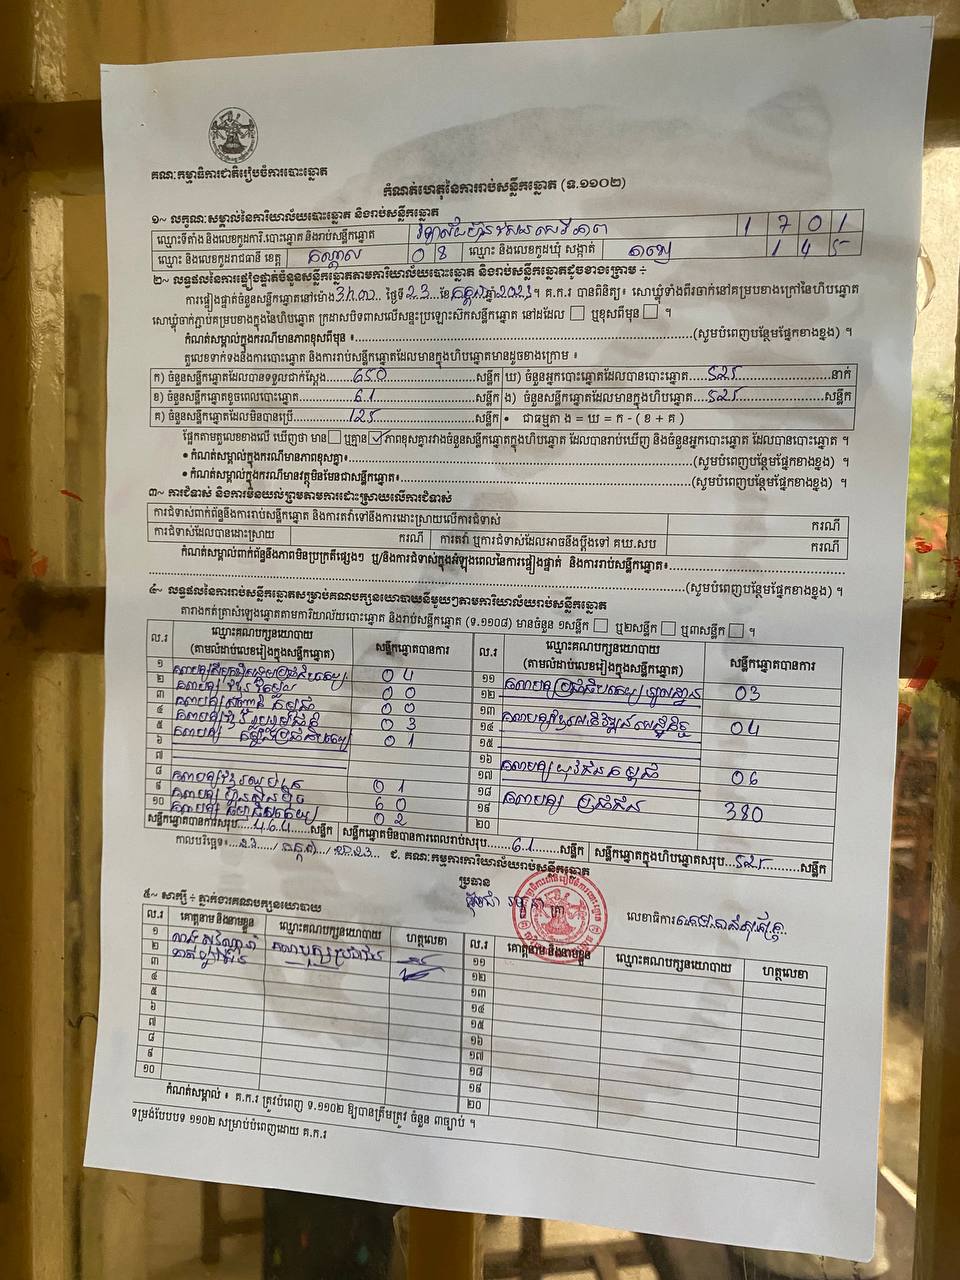 គណៈកម្មាធិការជាតិរៀបចំការបោះឆ្នោត
កំណត់ហេតុនៃការរាប់សន្លឹកឆ្នោត (ទ.១១០២)
១~ លក្ខណៈសម្គាល់នៃការិយាល័យបោះឆ្នោត និងរាប់សន្លឹកឆ្នោត
ឈ្មោះទីតាំង និងលេខកូដការិ.បោះឆ្នោត និងរាប់សន្លឹកឆ្នោត 1 7 0 1
ឈ្មោះ និងលេខកូដរាជធានី ខេត្ត កណ្តាល 0 8 ឈ្មោះ និងលេខកូដឃុំ សង្កាត់ 1 4 5
២~ លទ្ធផលនៃការផ្ទៀងផ្ទាត់ចំនួនសន្លឹកឆ្នោតតាមការិយាល័យបោះឆ្នោត និងរាប់សន្លឹកឆ្នោតដូចខាងក្រោម ÷
ការផ្ទៀងផ្ទាត់ចំនួនសន្លឹកឆ្នោតនៅម៉ោង ថ្ងៃទី 23 ខែ កក្កដា ឆ្នាំ 2023 ។ គ.ក.រ បានពិនិត្យ៖ សោឃ្លុំទាំងពីរចាក់នៅគម្របខាងក្រៅនៃហិបឆ្នោត
សោឃ្លុំចាក់ភ្ជាប់គម្របខាងក្នុងនៃហិបឆ្នោត ក្រដាសបិទពាសលើសន្ទះប្រឡោះស៊កសន្លឹកឆ្នោត នៅដដែល ឬខុសពីមុន ។
កំណត់សម្គាល់ក្នុងករណីមានភាពខុសពីមុន ៖ (សូមបំពេញបន្ថែមផ្នែកខាងខ្នង) ។
តួលេខទាក់ទងនឹងការបោះឆ្នោត និងការរាប់សន្លឹកឆ្នោតដែលមានក្នុងហិបឆ្នោតមានដូចខាងក្រោម ៖
ក) ចំនួនសន្លឹកឆ្នោតដែលបានទទួលជាក់ស្តែង 650 សន្លឹក ឃ) ចំនួនអ្នកបោះឆ្នោតដែលបានបោះឆ្នោត 525 នាក់
ខ) ចំនួនសន្លឹកឆ្នោតខូចពេលបោះឆ្នោត 61 សន្លឹក ង) ចំនួនសន្លឹកឆ្នោតដែលមានក្នុងហិបឆ្នោត 525 សន្លឹក
គ) ចំនួនសន្លឹកឆ្នោតដែលមិនបានប្រើ 125 សន្លឹក • ជាធម្មតា ង = ឃ = ក - ( ខ + គ )
ផ្អែកតាមតួលេខខាងលើ ឃើញថា មាន ឬគ្មាន ភាពខុសគ្នារវាងចំនួនសន្លឹកឆ្នោតក្នុងហិបឆ្នោត ដែលបានរាប់ឃើញ និងចំនួនអ្នកបោះឆ្នោត ដែលបានបោះឆ្នោត ។
• កំណត់សម្គាល់ក្នុងករណីមានភាពខុសគ្នា៖ (សូមបំពេញបន្ថែមផ្នែកខាងខ្នង) ។
• កំណត់សម្គាល់ក្នុងករណីមានវត្ថុមិនមែនជាសន្លឹកឆ្នោត៖ (សូមបំពេញបន្ថែមផ្នែកខាងខ្នង) ។
៣~ ការជំទាស់ និងការមិនយល់ព្រមតាមការដោះស្រាយលើការជំទាស់
ការជំទាស់ពាក់ព័ន្ធនឹងការរាប់សន្លឹកឆ្នោត និងការតវ៉ាទៅនឹងការដោះស្រាយលើការជំទាស់ ករណី
ការជំទាស់ដែលបានដោះស្រាយ ករណី ការតវ៉ា ឬការជំទាស់ដែលអាចនឹងប្តឹងទៅ គឃ.សប ករណី
កំណត់សម្គាល់ពាក់ព័ន្ធនឹងភាពមិនប្រក្រតីផ្សេងៗ ឬ/និងការជំទាស់ក្នុងអំឡុងពេលនៃការផ្ទៀងផ្ទាត់ និងការរាប់សន្លឹកឆ្នោត៖
(សូមបំពេញបន្ថែមផ្នែកខាងខ្នង) ។
៤~ លទ្ធផលនៃការរាប់សន្លឹកឆ្នោតសម្រាប់គណបក្សនយោបាយនីមួយៗតាមការិយាល័យរាប់សន្លឹកឆ្នោត
តារាងកត់ត្រាសំឡេងឆ្នោតតាមការិយាល័យបោះឆ្នោត និងរាប់សន្លឹកឆ្នោត (ទ.១១០៨) មានចំនួន ១សន្លឹក ឬ២សន្លឹក ឬ៣សន្លឹក ។
ល.រ ឈ្មោះគណបក្សនយោបាយ (តាមលំដាប់លេខរៀងក្នុងសន្លឹកឆ្នោត) សន្លឹកឆ្នោតបានការ
១ 04
២ 00
៣ 00
៤ 03
៥ 01
៦
៧
៨ 01
៩ 60
១០ 02
ល.រ ឈ្មោះគណបក្សនយោបាយ (តាមលំដាប់លេខរៀងក្នុងសន្លឹកឆ្នោត) សន្លឹកឆ្នោតបានការ
១១ 03
១២
១៣ 04
១៤
១៥
១៦ គណបក្ស យុវជនកម្ពុជា 06
១៧
១៨ គណបក្ស ប្រជាជន 380
១៩
២០
សន្លឹកឆ្នោតបានការសរុប 464 សន្លឹក សន្លឹកឆ្នោតមិនបានការពេលរាប់សរុប 61 សន្លឹក សន្លឹកឆ្នោតក្នុងហិបឆ្នោតសរុប 525 សន្លឹក
កាលបរិច្ឆេទ៖ 23 / កក្កដា / 2023 ៩. គណៈកម្មការការិយាល័យរាប់សន្លឹកឆ្នោត
ប្រធាន
លេខាធិការ
៥~ សាក្សី ÷ ភ្នាក់ងារគណបក្សនយោបាយ
ល.រ គោត្តនាម និងនាមខ្លួន ឈ្មោះគណបក្សនយោបាយ ហត្ថលេខា
១ គណបក្សប្រជាជន
២
៣
៤
៥
៦
៧
៨
៩
១០
ល.រ គោត្តនាម និងនាមខ្លួន ឈ្មោះគណបក្សនយោបាយ ហត្ថលេខា
១១
១២
១៣
១៤
១៥
១៦
១៧
១៨
១៩
២០
កំណត់សម្គាល់ ៖ គ.ក.រ ត្រូវបំពេញ ទ.១១០២ ឱ្យបានត្រឹមត្រូវ ចំនួន ៣ច្បាប់ ។
ទម្រង់បែបបទ ១១០២ សម្រាប់បំពេញដោយ គ.ក.រ